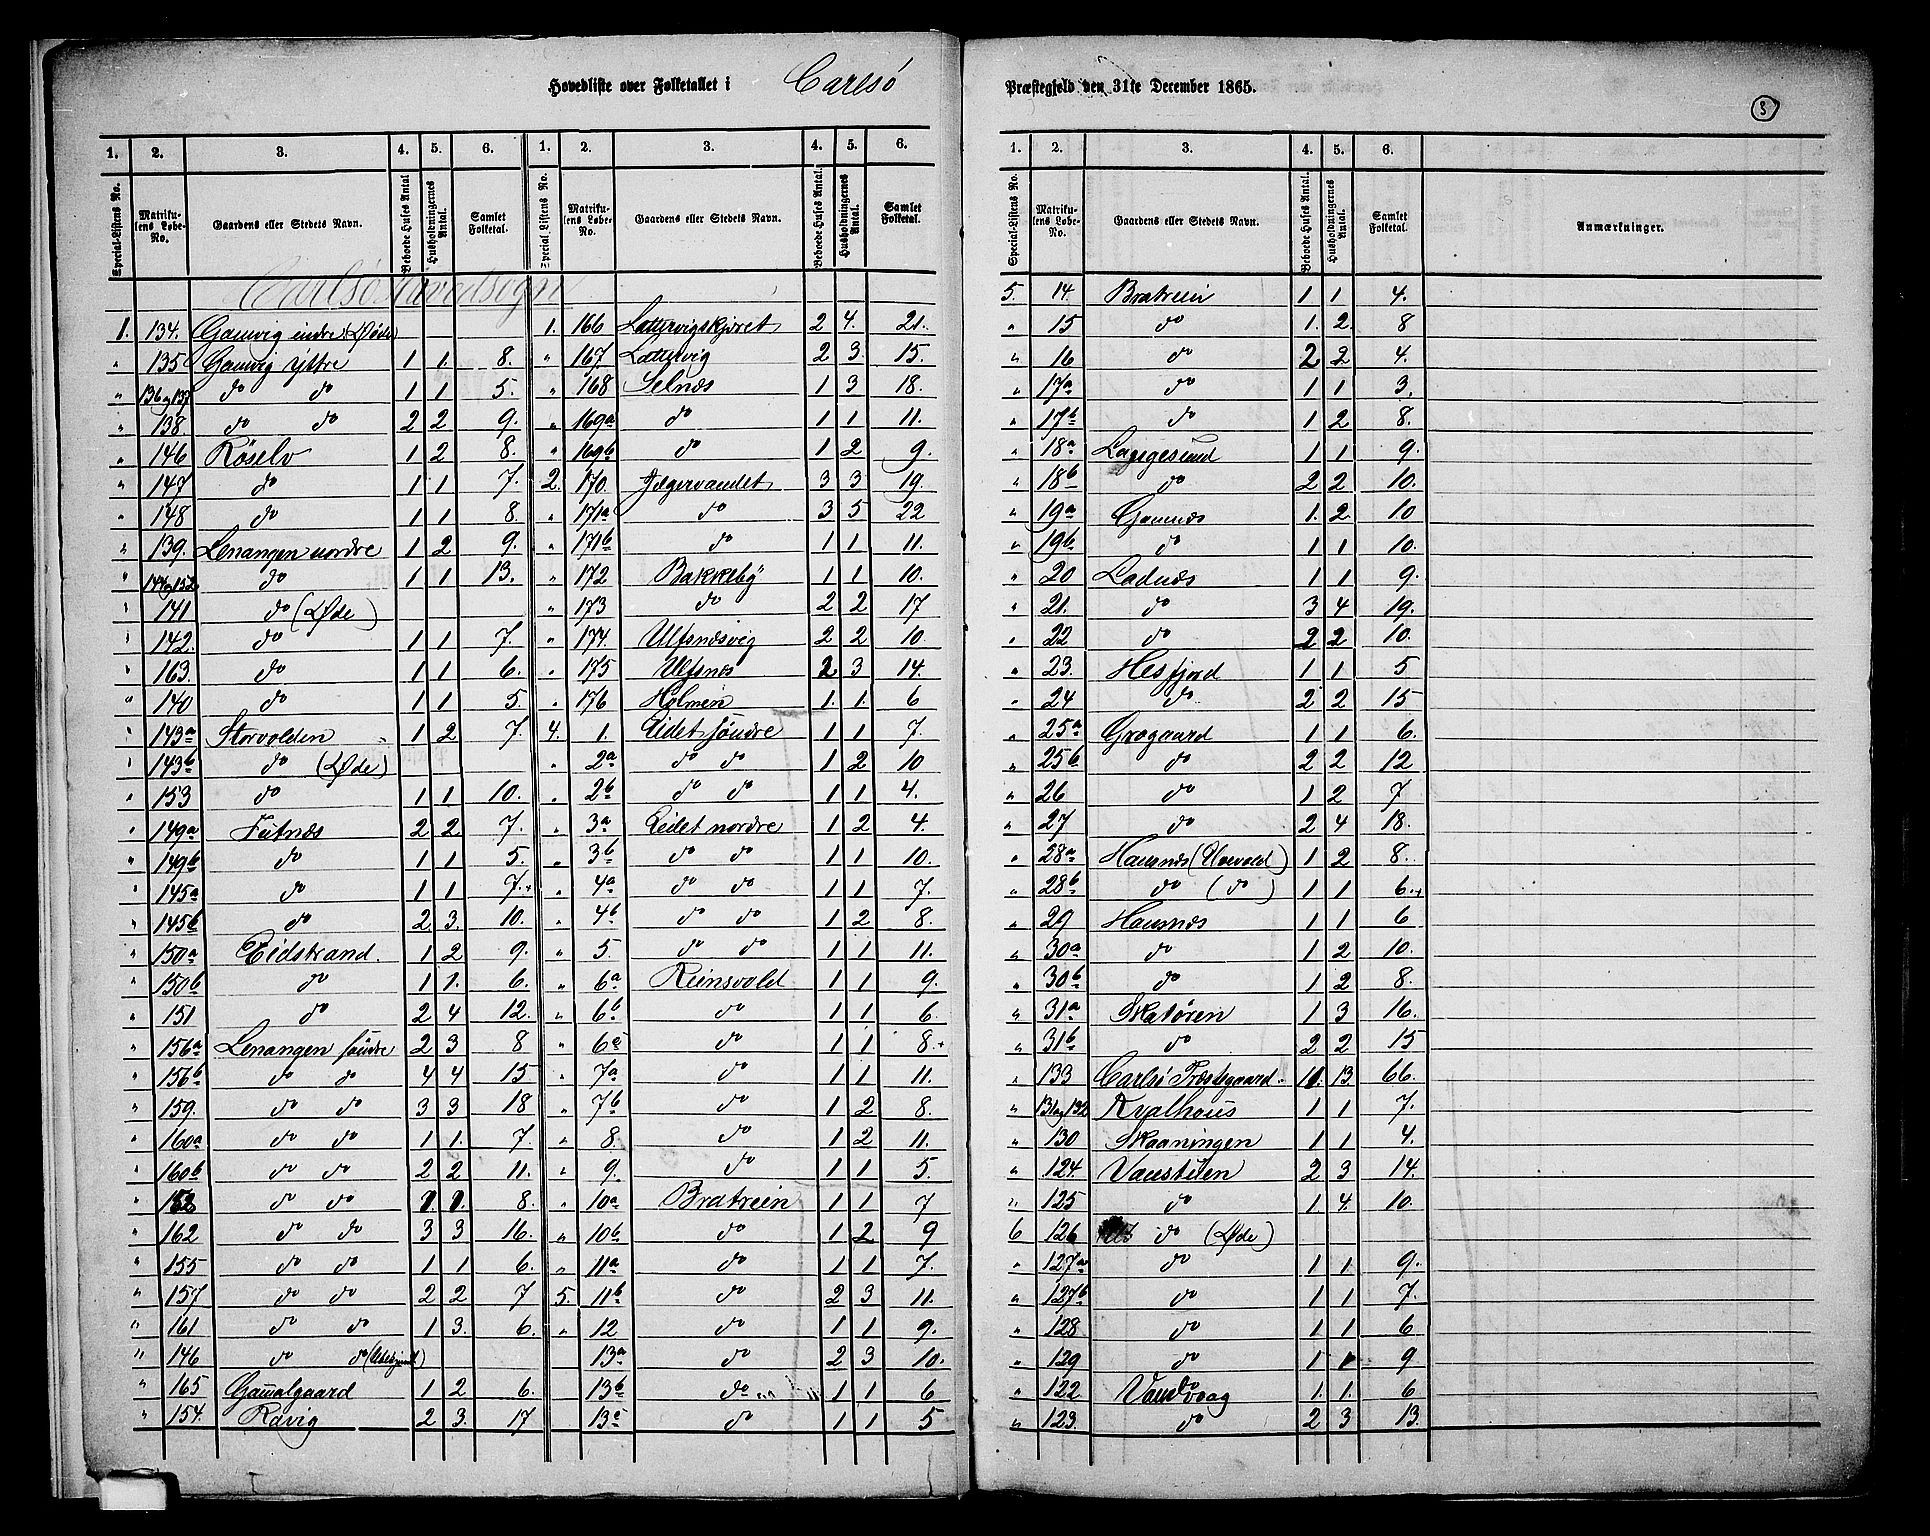 Hovedliste over Folketallet i Carlsö
1. 2. 3. 4. 5. 6. 1. 2. 3. 4. 5. 6.
Special-Listens No. Matrikulens Løbe-No. Gaardens eller Stedets Navn. Beboede Huses Antal Husholdningernes Antal. Samlet Folketal. Special-Listens No. Matrikulens Løbe-No. Gaardens eller Stedets Navn. Beboede Huses Antal. Husholdningernes Antal. Samlet Folketal.
Carlsö Hovedsogn
1. 134. Gamvig indre (Øde) 1. 166 Lattervigskjoret 2 4. 21.
" 135 Gamvig ÿttre 1 1. 8. " 167. Lattervig 2 3. 15.
" 136 og 137 do do 1 1 5. " 168 Selnæs 1 3 18.
" 138 do do 2 2 9. " 169a do 1 1 11.
" 146 Röselv 1 2 8. " 169b do 1 2 9.
" 147 do 1 1 7. 2. 170. Jægervandet 3 3 19.
" 148 do 1 1 8. " 171a do 3 5 22
" 139. Lenangen nordre 1 2 9. " 171b do 1 1 11.
" 144 og 152 do 1 1 13. " 172 Bakkebÿ 1 1 10.
" 141 do (Øde) " 173 do 2 2 17
" 142. do 1 1 7. " 174. Ulfsnæsvig 2 2 10.
" 163. do 1 1 6. " 175 Ulfsnæs 2 3 14.
" 140 do 1 1 5. " 176 Holmen 1. 1. 6
" 143a Storvolden 1 2 7. 4. 1. Eidet söndre 1 1 7.
" 143b do (Øde) " 2a do do 1 2 10
" 153 do 1 1 10. " 2b do do 1 1 4.
" 149a Jutnæs 2 2 7. " 3a Eidet nordre 1 2 4.
" 149b do 1 1 5. " 3b do do 1 1 10.
" 145a do 1 1 7. " 4a do do 1 1 7.
" 145b do 2 3. 10. " 4b do do 1 2 8.
" 150a Eidstrand. 1 2 9. " 5 do do 1 1 11.
" 150b do 1 1. 6. " 6a Reinsvold 1 1 9.
" 151 do 2 4 12. " 6b do 1 1 6.
" 156a Lenangen söndre 2 3 8 " 6c do 1 1 8.
" 156b do do 4 4 15 " 7a do 1 1 11.
" 159. do do 3 3 18 " 7b do 1 2 8.
" 160a do do 1 1. 7. " 8. do 1 2 11.
" 160b do do 2 2 11. " 9. do 1 1 5
" do do 1. 1. 8. " 10a Bratrein 1 1 7
" 162 do do 3 3 16. " 10b do 1 2 9
" 155 do do 1 1 6. " 11a do 1 1 7.
" 157 do do 2 2 7 5. 11b do 2 3 11.
" 161 do do 1 3. 6. " 12 do 1 1 9.
" 146 do do 13a do 2 3 10.
" 165 Gammelgaard 1 2 6. 13b do 1 1 6
" 154. Ravig 2 3. 17 13c do 1 1 5
Præstegjeld den 31te December 1865.
8
1. 2. 3. 4. 5. 6.
Special-Listens No. Matrikulens Løbe-No. Gaardens eller Stedets Navn. Beboede Huses Antal. Husholdningernes Antal. Samlet Folketal. Anmærkninger.
5. 14. Bratrein 1 1 4.
" 15 do 1. 2. 8
" 16 do 2 2 4.
" 17a do 1 1 3.
" 17b do 1 2 8.
" 18a Langesund 1 1 9.
" 18b do 2 2 10.
" 19a Gamnæs 1. 2 10
" 19b do 1 1 10.
" 20 Ladnæs 1 1 9.
" 21. do 3 4 19.
" 22 do 2 2 10.
" 23. Hesfjord 1 1 5
" 24 do 2 2 15
" 25a Grøgaard 1 1 6.
" 25b do 2 2 12
" 26 do 1 2 7
" 27 do 2 4 18.
" 28a Hamnæs 1 2 8.
" 28b do (do) 1 1 6.
" 29 Hamnæs 1 1 6
" 30a do 1 2 10.
" 30b do 1 2 8.
" 31a Skatören 1 3 16.
" 31b do 2 2 15
" 133 Carlsö Præstegaard. 11. 13. 66.
" 131 og 132 Kvalhous 1 1 7.
" 130 Skaaningen 1 1 4.
" 124. Vanstuen 2 3 14.
" 125 do 1 4. 10.
6 126 do (Øde)
" 127a do 1 1 9.
" 127b do 1 1 7.
" 128 do 1 1 6
" 129 do 1 1 9
" 122. Vandvaag 1. 1. 6
" 123. do 2 3 13.